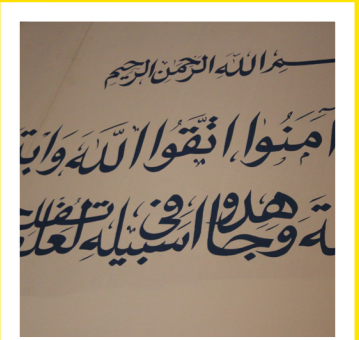 بسم الله الرحمن الرحيم
آمَنُوا اتَّقُوا اللَّهَ وَابْتَ
ةَ وَجَاهِدُوا فِي سَبِيلِهِ لَعَلَّكُمْ تُفْلِ